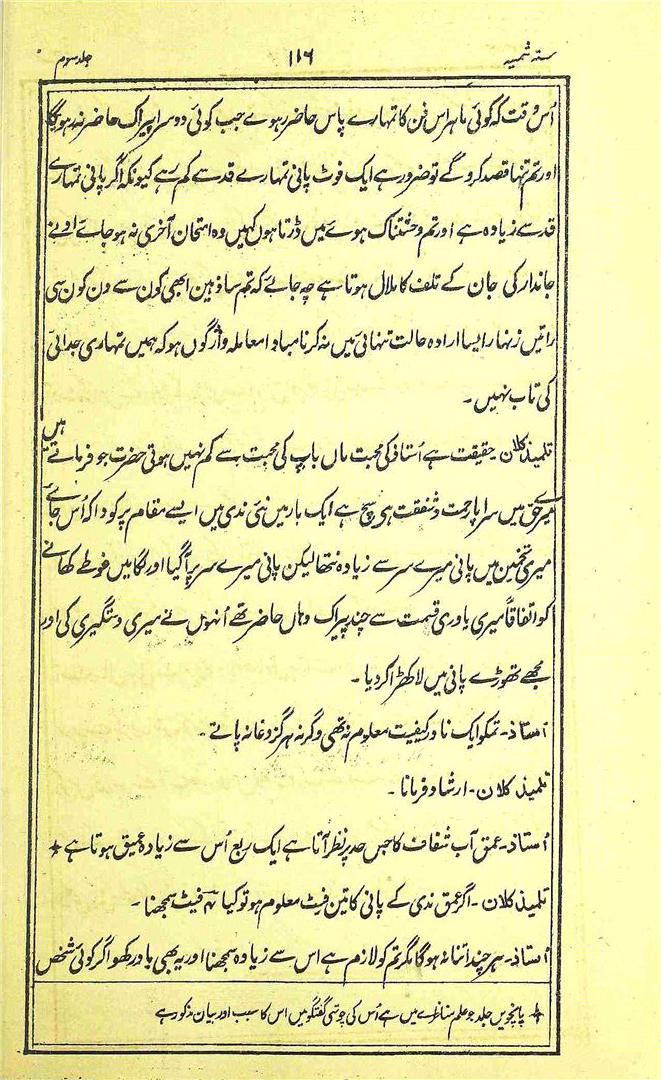 ستہ شمیہ ۱۱۶ جلد سوم
اُس وقت کہ کوئی ماہر اس فن کا تمہارے پاس حاضر رہوے جب کوئی دوسرا پیراک حاضر نہ ہوگا
اور تم تنہا قصد کروگے تو ضرور ہے ایک فوٹ پانی تمہارے قد سے کم رہے کیونکہ اگر پانی تمہارے
قد سے زیادہ ہے اور تم وحشتناک ہوے میں ڈرتا ہوں کہیں وہ امتحان آخری نہ ہو جاے ادنے
جاندار کی جان کے تلف کا ملال ہوتا ہے چہ جائے کہ تم سا ذہین ابھی کون سے دن کون سی
راتیں زنہار ایسا ارادہ حالت تنہائی میں نہ کرنا مبادا معاملہ واژگوں ہو کہ ہمیں تمہاری جدائی
کی تاب نہیں ۔
تلمیذ کلان ۔ حقیقت ہے اُستاذ کی محبت ماں باپ کی محبت سے کم نہیں ہوتی حضرت جو فرماتے ہیں
میرے حق میں سراپا رحمت و شفقت ہی سچ ہے ایک بار میں نئی ندی میں ایسے مقام پر کودا کہ اُس جاے
میری تخمین میں پانی میرے سر سے زیادہ نتھا لیکن پانی میرے سر پر آگیا اور لگا میں غوطے کھانے
کو اتفاقاً میری یاوری قسمت سے چند پیراک وہاں حاضر تھے اُنہوں نے میری دستگیری کی اور
مجھے تھوڑے پانی میں لا کھڑا کر دیا ۔
اُستاذ ۔ تمکو ایک نادر کیفیت معلوم نہ تھی وگرنہ ہرگز دغا نہ پاتے ۔
تلمیذ کلان ۔ ارشاد فرمانا ۔
اُستاذ ۔ عمق آب شفاف کا جس حد پر نظر آتا ہے ایک ربع اُس سے زیادہ عمیق ہوتا ہے +
تلمیذ کلان ۔ اگر عمق ندی کے پانی کا تین فیٹ معلوم ہو تو کیا فیٹ سمجھنا ۔
اُستاذ ۔ ہر چند اتنا نہ ہوگا مگر تم کو لازم ہے اس سے زیادہ سمجھنا اور یہ بھی یاد رکھو اگر کوئی شخص
+ پانچویں جلد جو علم مناظرے میں ہے اُس کی چوتھی گفتگو میں اس کا سبب اور بیان مذکور ہے